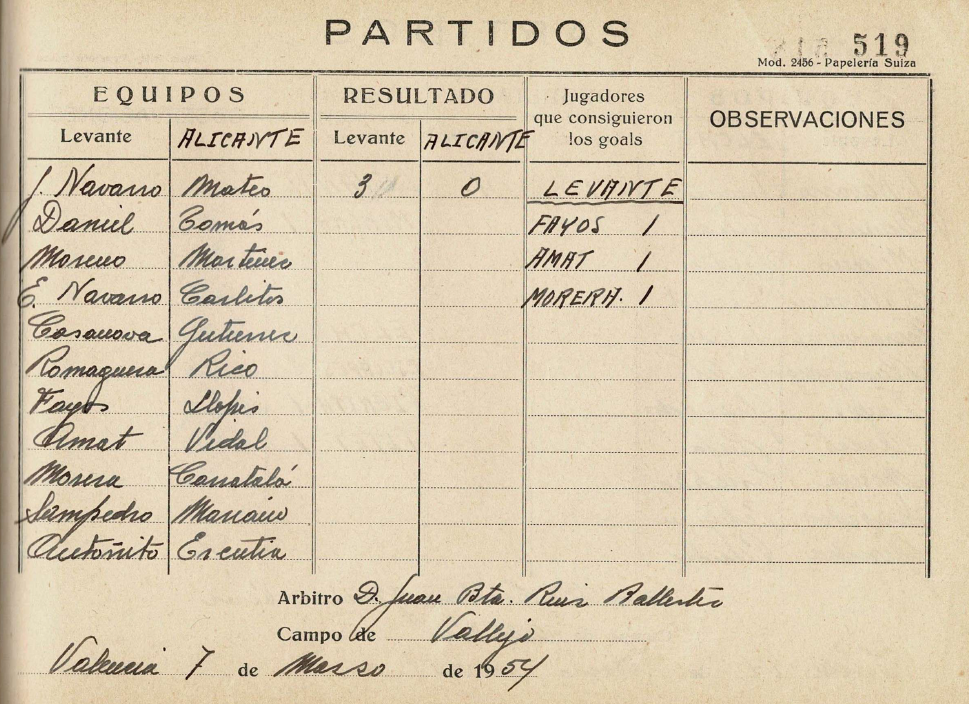 PARTIDOS
519
Mod. 2456 - Papelería Suiza
EQUIPOS RESULTADO Jugadores que consiguieron los goals OBSERVACIONES
Levante ALICANTE Levante ALICANTE
J. Navarro Mateo 3 0 LEVANTE
Daniel Tomás FAYOS 1
Moreno Martinez AMAT 1
E. Navarro Carlitos MORERA. 1
Casanova Gutierrez
Romaguera Rico
Fayos Llopis
Amat Vidal
Morera Carratalá
Sampedro Mariano
Antoñito Escutia
Arbitro D. Juan Bta. Ruiz Ballester
Campo de Vallejo
Valencia 7 de Marzo de 1954